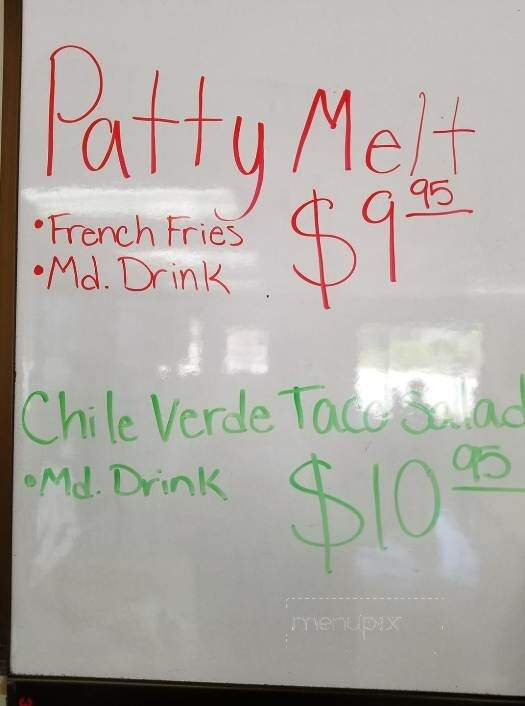 Patty Melt
• French Fries
• Md. Drink
$9 95
Chile Verde Taco Salad
• Md. Drink
$10 95
menupix